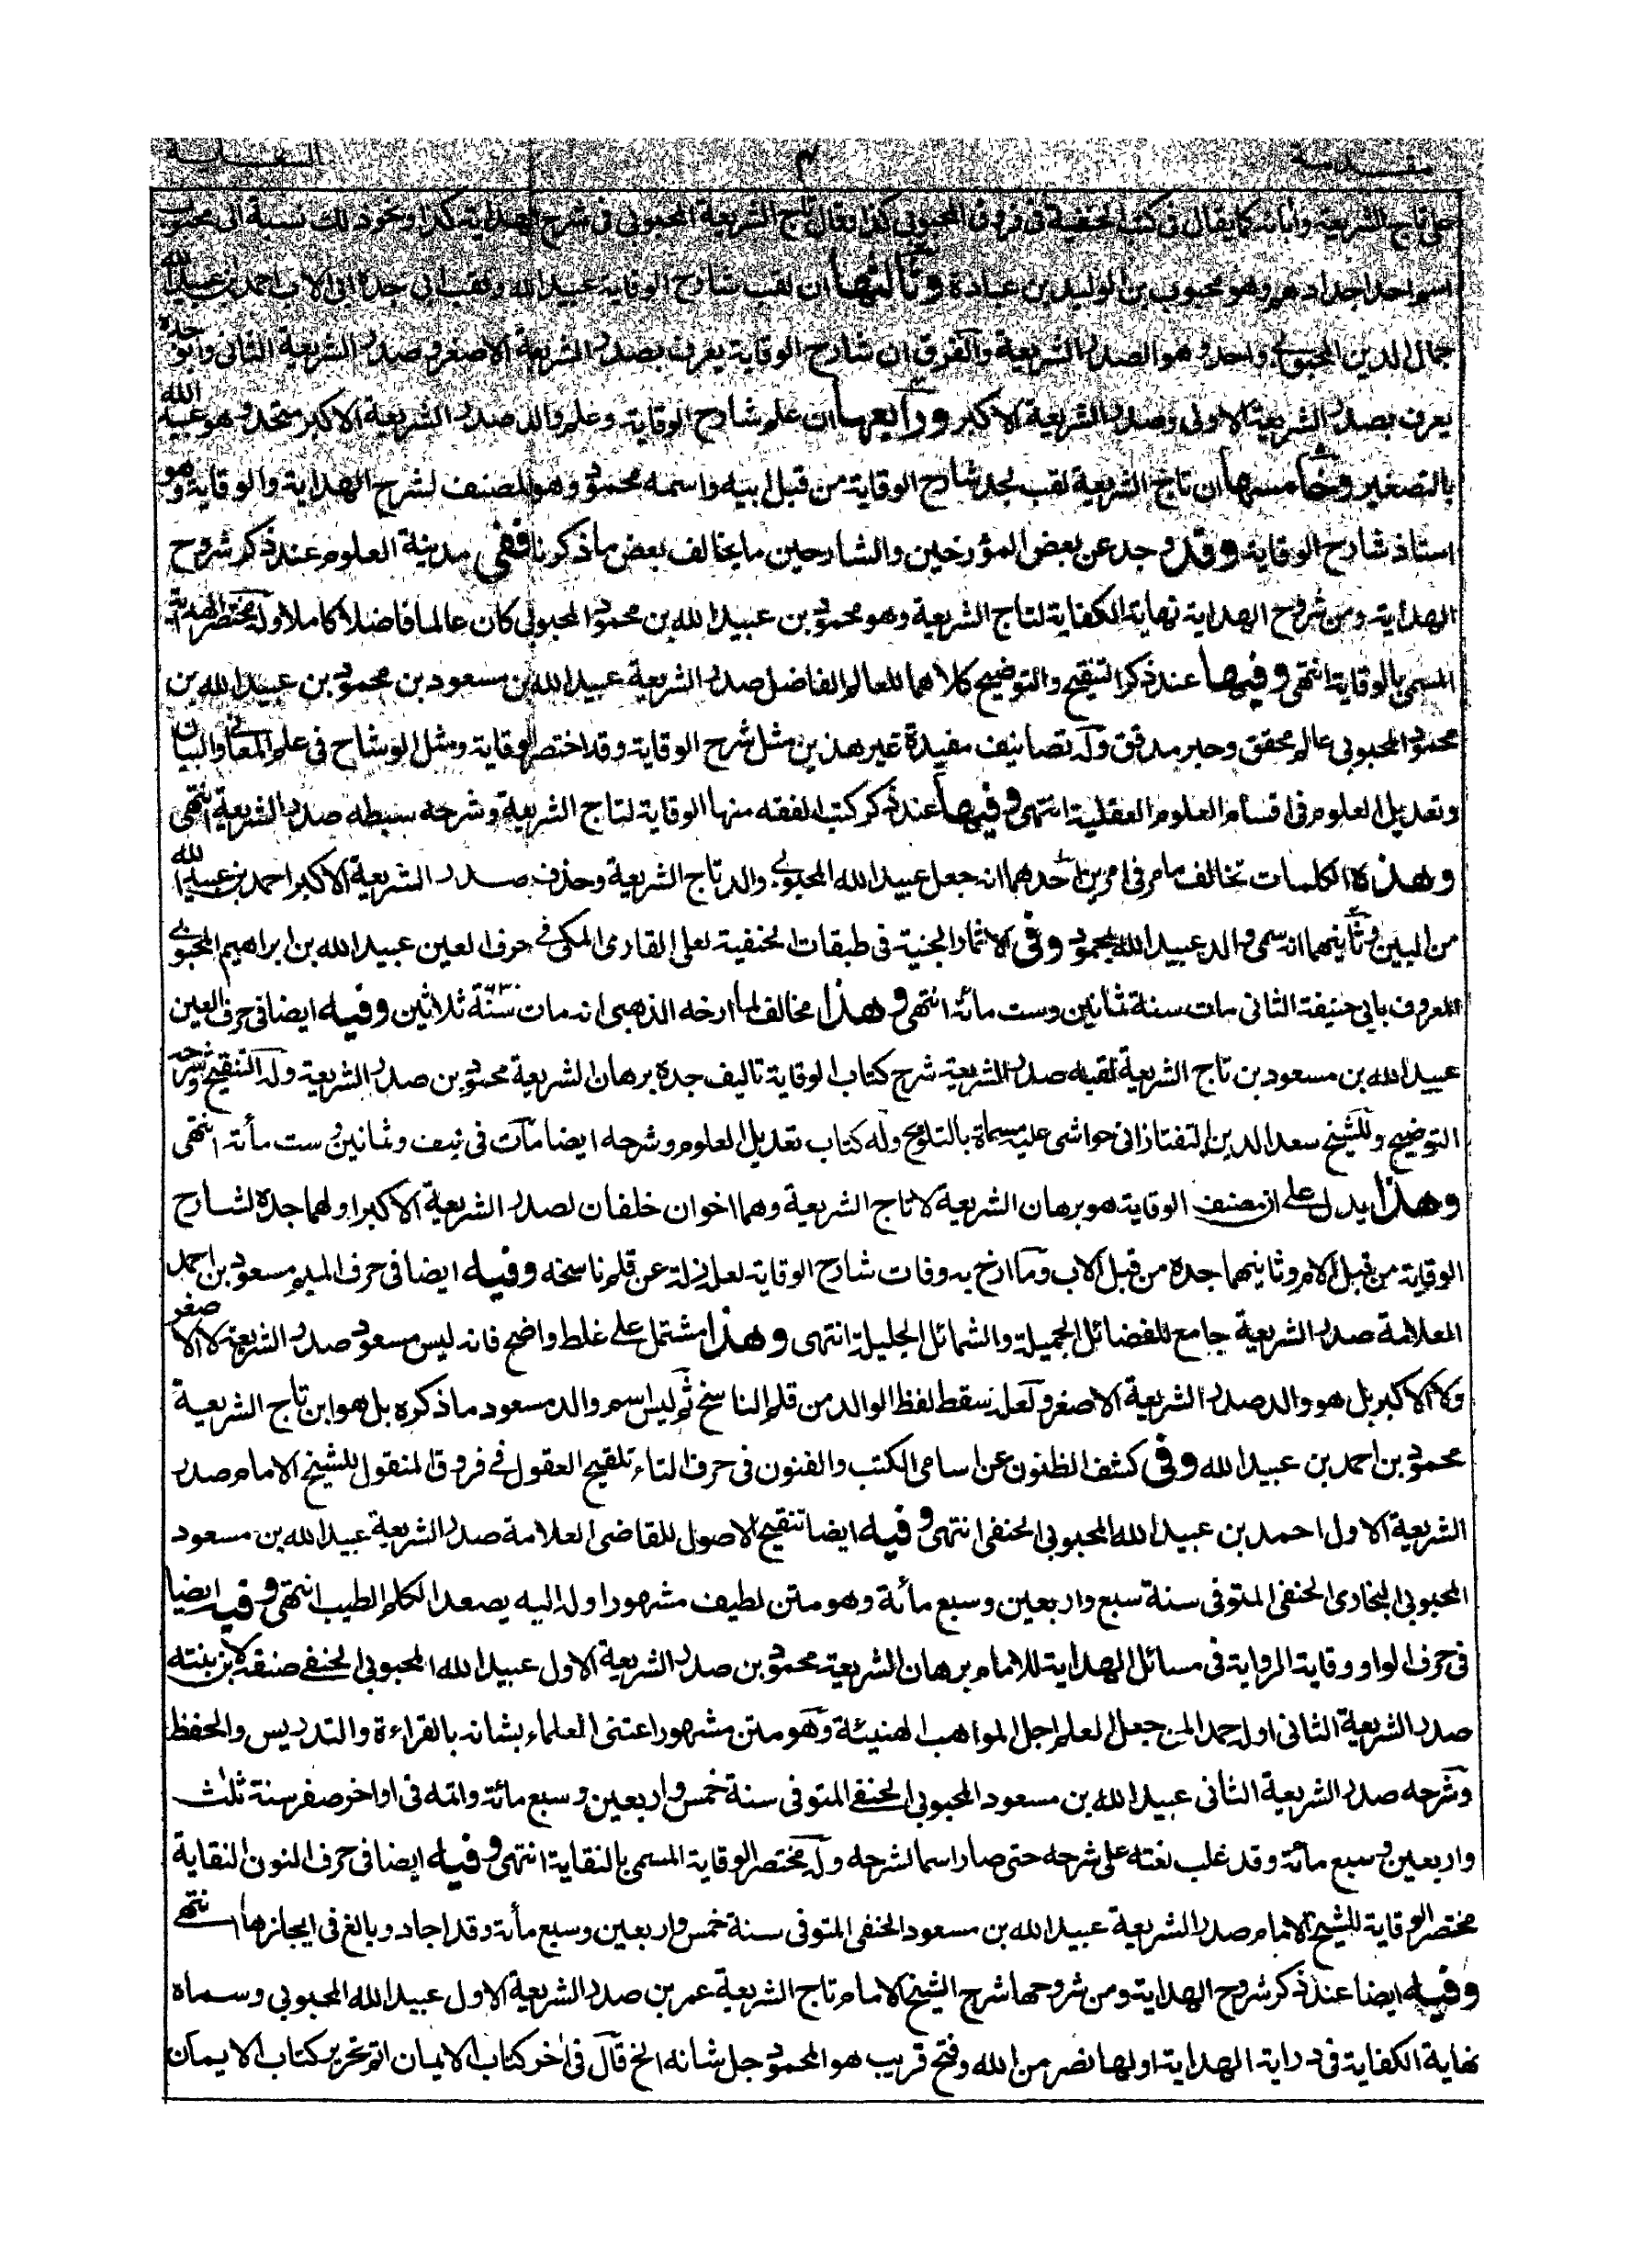 مقدمة ٣ السقاية
على تاج الشريعة وأبائه كما يقال فى كتب الحنفية فى فروق المحبوبى كذا وقال تاج الشريعة المحبوبى فى شرح الهداية كذا ونحو ذلك نسبة الى محبوب
اسم احد اجدادهم وهو محبوب بن الوليد بن عبادة وثالثها ان لقب شارح الوقاية عبيد الله ولقب ابى جده ابى الاب احمد بن عبيد الله
جمال الدين المحبوبى واحد وهو الصدر الشريعة والفرق ان شارح الوقاية يعرف بصدر الشريعة الاصغر وصدر الشريعة الثانى وابو جده
يعرف بصدر الشريعة الاولى وصدر الشريعة الاكبر ورابعها ان علم شارح الوقاية وعلم والد صدر الشريعة الاكبر متحد وهو عبيد الله
بالتصغير وخامسها ان تاج الشريعة لقب لجد شارح الوقاية من قبل ابيه واسمه محمود وهو المصنف لشرح الهداية والوقاية وهو
استاذ شارح الوقاية وقد وجد عن بعض المؤرخين والشارحين ما يخالف بعض ما ذكرنا ففى مدينة العلوم عند ذكر شروح
الهداية ومن شروح الهداية نهاية الكفاية لتاج الشريعة وهو محمود بن عبيد الله بن محمود المحبوبى كان عالما فاضلا كاملا وله مختصر الهداية
المسمى بالوقاية انتهى وفيها عند ذكر التنقيح والتوضيح كلاهما للعالم الفاضل صدر الشريعة عبيد الله بن مسعود بن محمود بن عبيد الله بن
محمود المحبوبى عالم محقق وحبر مدقق وله تصانيف مفيدة غير هذين مثل شرح الوقاية وقد اختصر الوقاية ومثل الوشاح فى علم المعانى والبيان
وتعديل العلوم فى اقسام العلوم العقلية انتهى وفيها عند ذكر كتب الفقه منها الوقاية لتاج الشريعة وشرحه سبطه صدر الشريعة انتهى
وهذه الكلمات تخالف ما مر فى امرين احدهما انه جعل عبيد الله المحبوبى والد تاج الشريعة وحذف صدر الشريعة الاكبر احمد بن عبيد الله
من البين وثانيهما انه سمى والد عبيد الله بمحمود وفى الاثمار الجنية فى طبقات الحنفية لعلى القارى المكى فى حرف العين عبيد الله بن ابراهيم المحبوبى
المعروف بابى حنيفة الثانى مات سنة ثمانين وست مائة انتهى وهذا مخالف لما ارخه الذهبى انه مات سنة ٦٣٠ ثلاثين وفيه ايضا فى حرف العين
عبيد الله بن مسعود بن تاج الشريعة لقبه صدر الشريعة شرح كتاب الوقاية تاليف جده برهان الشريعة محمود بن صدر الشريعة وله التنقيح وشرحه
التوضيح وللشيخ سعد الدين التفتازانى حواشى عليه مسماة بالتلويح وله كتاب تعديل العلوم وشرحه ايضا مات فى نيف وثمانين وست مأئة انتهى
وهذا يدل على ان مصنف الوقاية هو برهان الشريعة لا تاج الشريعة وهما اخوان خلفان لصدر الشريعة الاكبر اولهما جده لشارح
الوقاية من قبل الام وثانيهما جده من قبل الاب وما ارخ به وفات شارح الوقاية لعل زلة عن قلم ناسخه وفيه ايضا فى حرف الميم مسعود بن احمد
العلامة صدر الشريعة جامع للفضائل الجميلة والشمائل الجليلة انتهى وهذا مشتمل على غلط واضح فانه ليس مسعود صدر الشريعة لا الاصغر
ولا الاكبر بل هو والد صدر الشريعة الاصغر ولعله سقط لفظ الوالد من قلم الناسخ ثم ليس اسم والد مسعود ما ذكره بل هو ابن تاج الشريعة
محمود بن احمد بن عبيد الله وفى كشف الظنون عن اسامى الكتب والفنون فى حرف التاء تلقيح العقول فى فروق المنقول للشيخ الامام صدر
الشريعة الاول احمد بن عبيد الله المحبوبى الحنفى انتهى وفيه ايضا تنقيح الاصول للقاضى العلامة صدر الشريعة عبيد الله بن مسعود
المحبوبى البخارى الحنفى المتوفى سنة سبع واربعين وسبع مائة وهو متن لطيف مشهور اوله اليه يصعد الكلم الطيب انتهى وفيه ايضا
فى حرف الواو وقاية الرواية فى مسائل الهداية للامام برهان الشريعة محمود بن صدر الشريعة الاول عبيد الله المحبوبى الحنفى صنفه لابن بنته
صدر الشريعة الثانى اوله حمد المن جعل العلم اجل المواهب الهنيئة وهو متن مشهور اعتنى العلماء بشانه بالقراءة والتدريس والحفظ
وشرحه صدر الشريعة الثانى عبيد الله بن مسعود المحبوبى الحنفى المتوفى سنة خمس واربعين وسبع مائة واتمه فى اواخر صفر سنة ثلث
واربعين وسبع مائة وقد غلب نعته على شرحه حتى صار اسما لشرحه وله مختصر الوقاية المسمى بالنقاية انتهى وفيه ايضا فى حرف النون النقاية
مختصر الوقاية للشيخ الامام صدر الشريعة عبيد الله بن مسعود الحنفى المتوفى سنة خمس واربعين وسبع مأئة وقد اجاد وبالغ فى ايجازها انتهى
وفيه ايضا عند ذكر شروح الهداية ومن شروحها شرح الشيخ الامام تاج الشريعة عمر بن صدر الشريعة الاول عبيد الله المحبوبى وسماه
نهاية الكفاية فى دراية الهداية اولها نصر من الله وفتح قريب هو المحمود جل شانه الخ قال فى اخر كتاب الايمان اتم تحرير كتاب الايمان